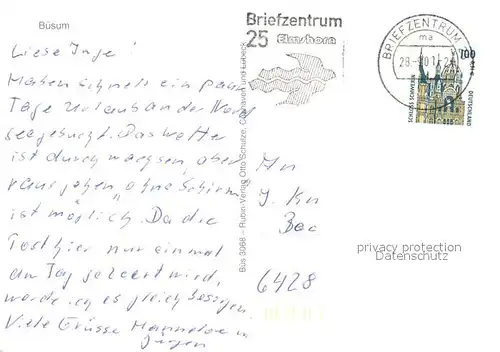 Büsum
Liese Inge!
Haben schnell ein paar
Tage Urlaub an der Nord
see gebucht. Das Wetter
ist durchwachsen, aber
rausgehen "ohne Schirm
ist möglich. Da die
Post hier nur einmal
am Tag geleert wird,
werde ich es gleich besorgen.
Viele Grüsse Hannelore u
Jürgen
Büs 3068 - Ruben-Verlag Otto Schulze, Cuxhaven und Lübeck
Briefzentrum
25 Elmshorn
BRIEFZENTRUM
ma
100
SCHLOSS SCHWERIN
DEUTSCHLAND
J. Kn
6428
privacy protection
Datenschutz